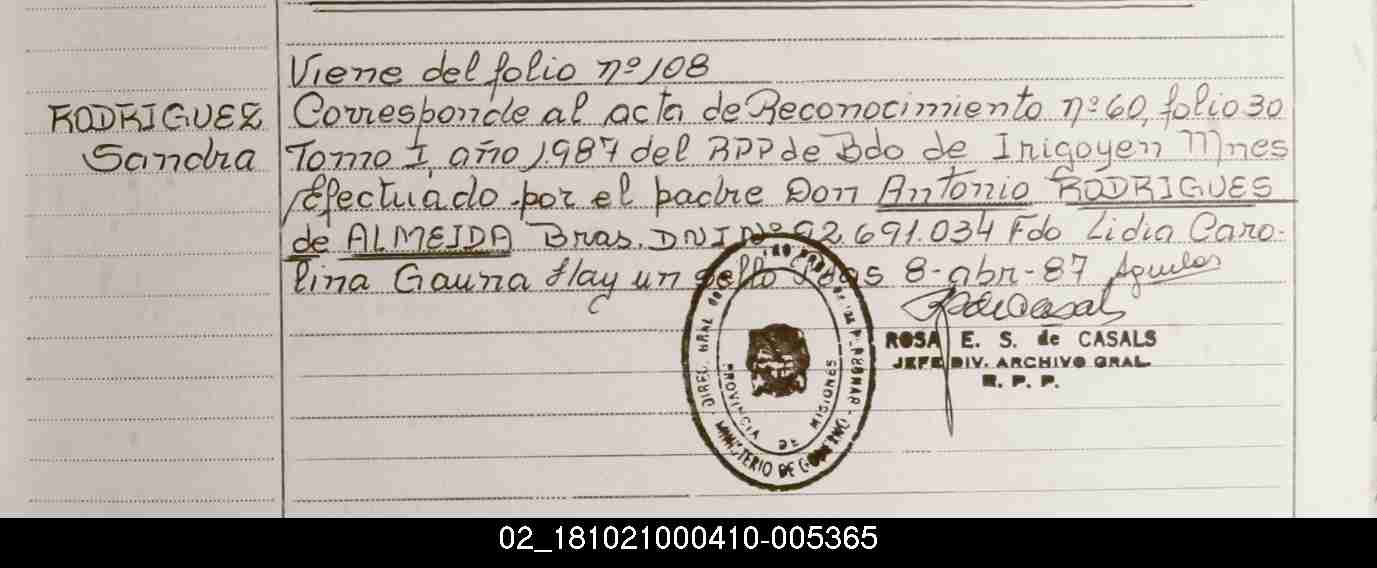 Viene del folio nº 108
RODRIGUEZ
Sandra
Corresponde al acta de Reconocimiento nº 60, folio 30
Tomo I, año 1.987 del RPP de Bdo de Irigoyen Mnes
Efectuado por el padre Don Antonio RODRIGUES
de ALMEIDA Bras. DNI Nº 92.691.034 Fdo Lidia Caro-
lina Gauna Hay un sello 8-abr-87 Aguilar
ROSA E. S. de CASALS
JEFE DIV. ARCHIVO GRAL.
R. P. P.
DIREC. GRAL de
PROVINCIA DE MISIONES
MINISTERIO DE GOBIERNO
02_181021000410-005365